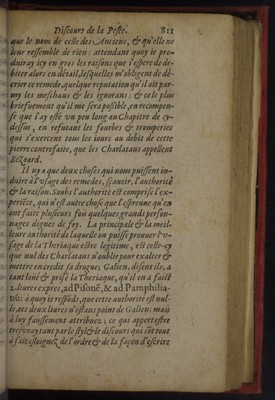 Discours de la Peste. 811
que le nom de celle des Anciens, & qu'elle ne
leur ressemble de rien: attendant quoy ie pro-
duiray icy en gros les raisons que i'espere de de-
biter alors en détail, lesquelles m'obligent de dé-
crier ce remede, quelque reputation qu'il ait par-
my les meschans & les ignorans: & ce le plus
briefuement qu'il me sera possible, en recompen-
se que i'ay esté vn peu long au Chapitre de cy-
dessus, en refutant les fourbes & tromperies
qui s'exercent tous les iours au debit de cette
pierre contrefaite, que les Charlatans appellent
Bezoard.
Il n'y a que deux choses qui nous puissent in-
duire à l'vsage des remedes, sçauoir, l'authorité
& la raison. Soubs l'authorité est comprise l'ex-
perience, qui n'est autre chose que l'espreuue qu'en
ont faite plusieurs fou quelques grands person-
nages dignes de foy. La principale & la meil-
leure authorité de laquelle on puisse prouuer l'v-
sage de la Theriaque estre legitime, est celle-cy
que nul des Charlatans n'oublie pour exalter &
mettre en credit sa drogue. Galien, disent ils, a
tant loüé & prisé la Theriaque, qu'il en a faict
2. liures exprez, ad Pisonē, & ad Pamphilia-
nū: à quoy ie respōds, que cette authorité est nul-
le, ces deux liures n'estans point de Galien; mais
à luy faussement attribuez; ce qui appert estre
tres-vray tant par le styl & le discours qui sōt tout
à fait esloignez de l'ordre & de la façon d'escrire